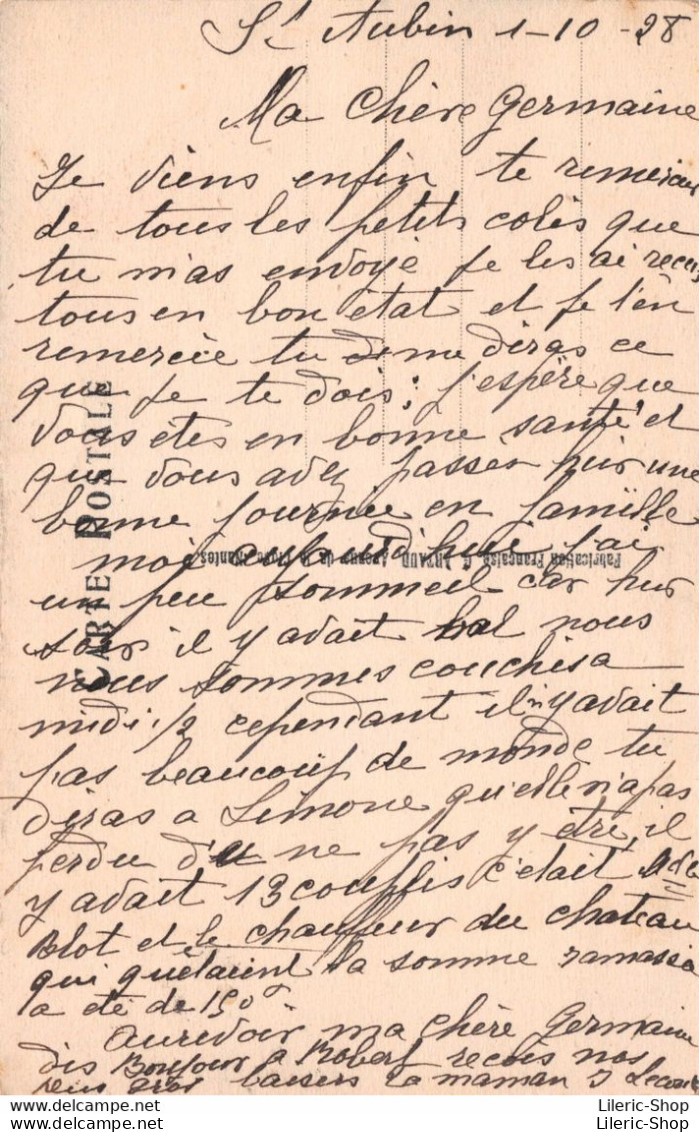 St Aubin 1-10-28
Ma Chère Germaine
Je viens enfin te remercier
de tous les petits colis que
tu m'as envoyé je les ai reçus
tous en bon état et je t'en
remercie tu me diras ce
que je te dois; j'espère que
vous êtes en bonne santé et
que vous avez passer hier une
bonne journée en famille
moi aujourd'hui j'ai
un peu sommeil car hier
soir il y avait bal nous
nous sommes couchés a
midi 1/2 cependant il n'y avait
pas beaucoup de monde tu
diras a Simone qu'elle n'a pas
perdu d'u ne pas y être, il
y avait 13 couples c'était Mde
Blot et le chauffeur du chateau
qui quêtaient la somme ramassé
a été de 150f.
Aurevoir ma chère Germaine
dis Bonjour a Robert recois nos
baisers ta maman
CARTE POSTALE
Fabrication Française, G. ARTAUD, Avenue de la Nantes
Lileric-Shop Lileric-Shop
Lileric-Shop Lileric-Shop